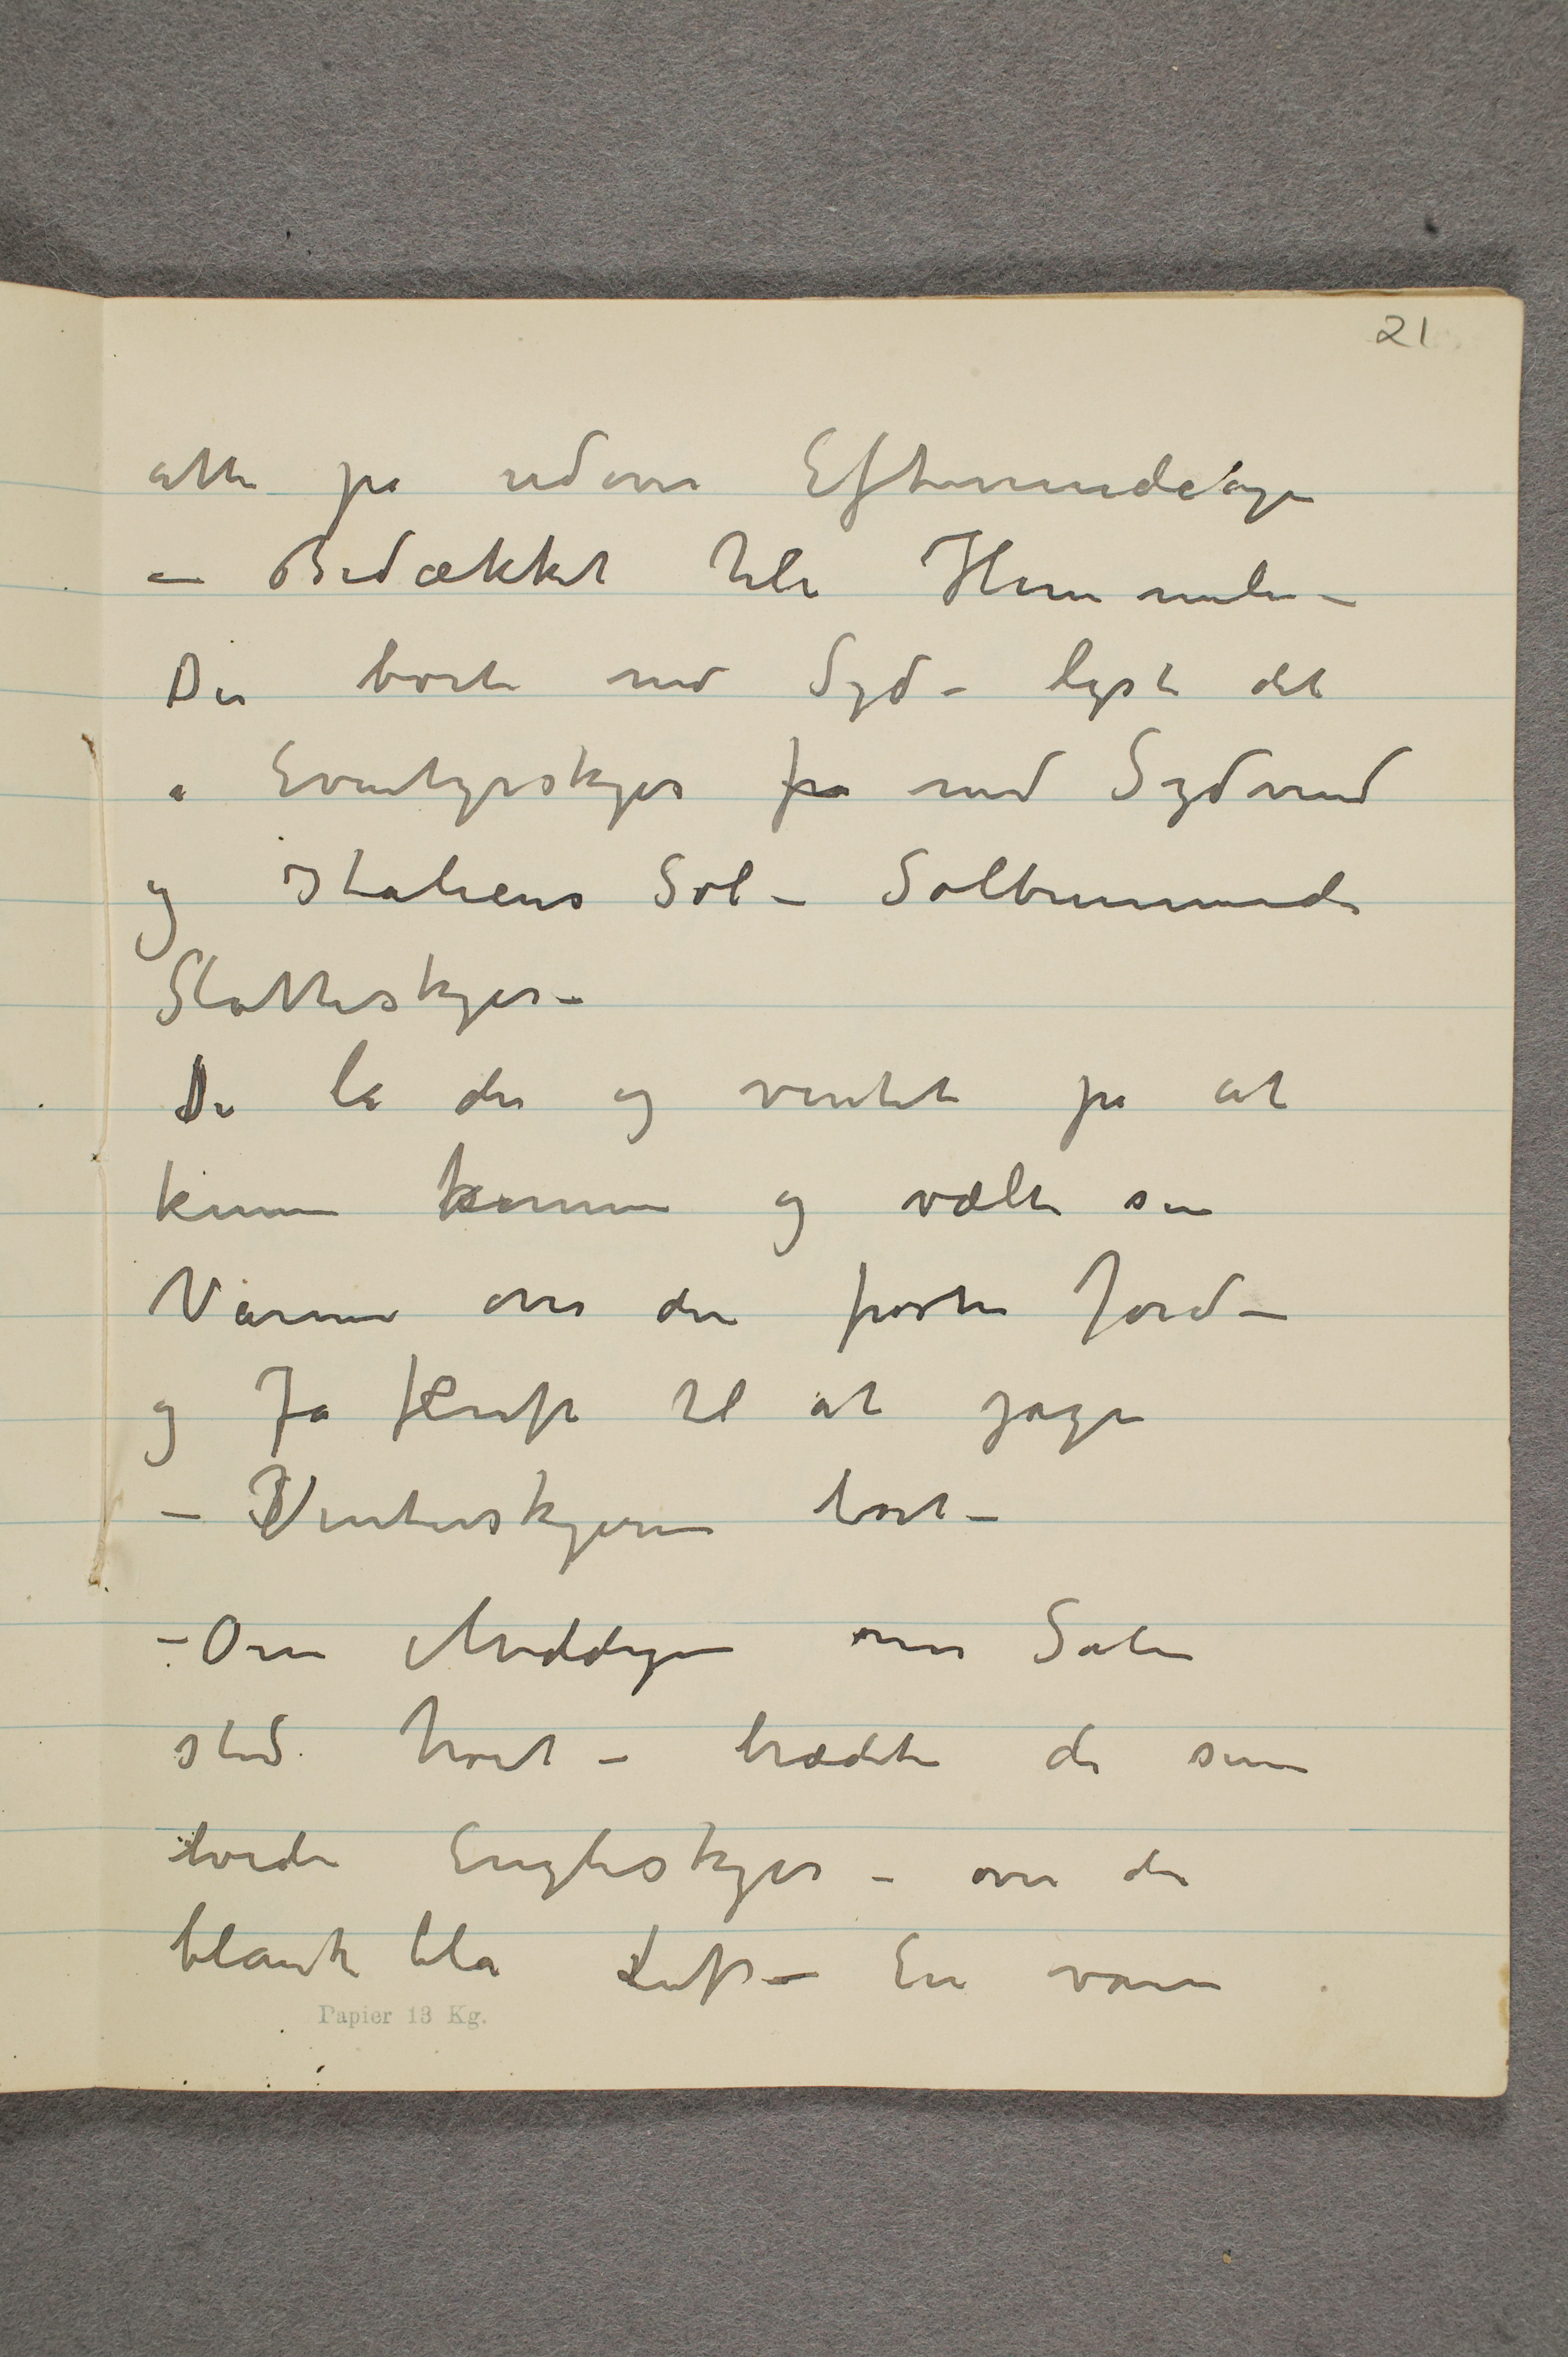 21
atter på udover Eftermiddagen
– Bedækket hele Himmelen –
Der borte mod Syd – lyste det
a Eventyrskyer fra med Sydvind
og Italiens Sol – Solbrunnende
Slottsskyer –
De lå der og ventet på at
kunne komme og vælte sin
Varme over den frosne Jord –
og få Kraft til at jage
– Vinterskyerne bort –
– Om Middagen når Solen
stod høit – bredte de sine
hvide Engleskyer – over den
blanke blå Luft – En varm
Papier 13 Kg.